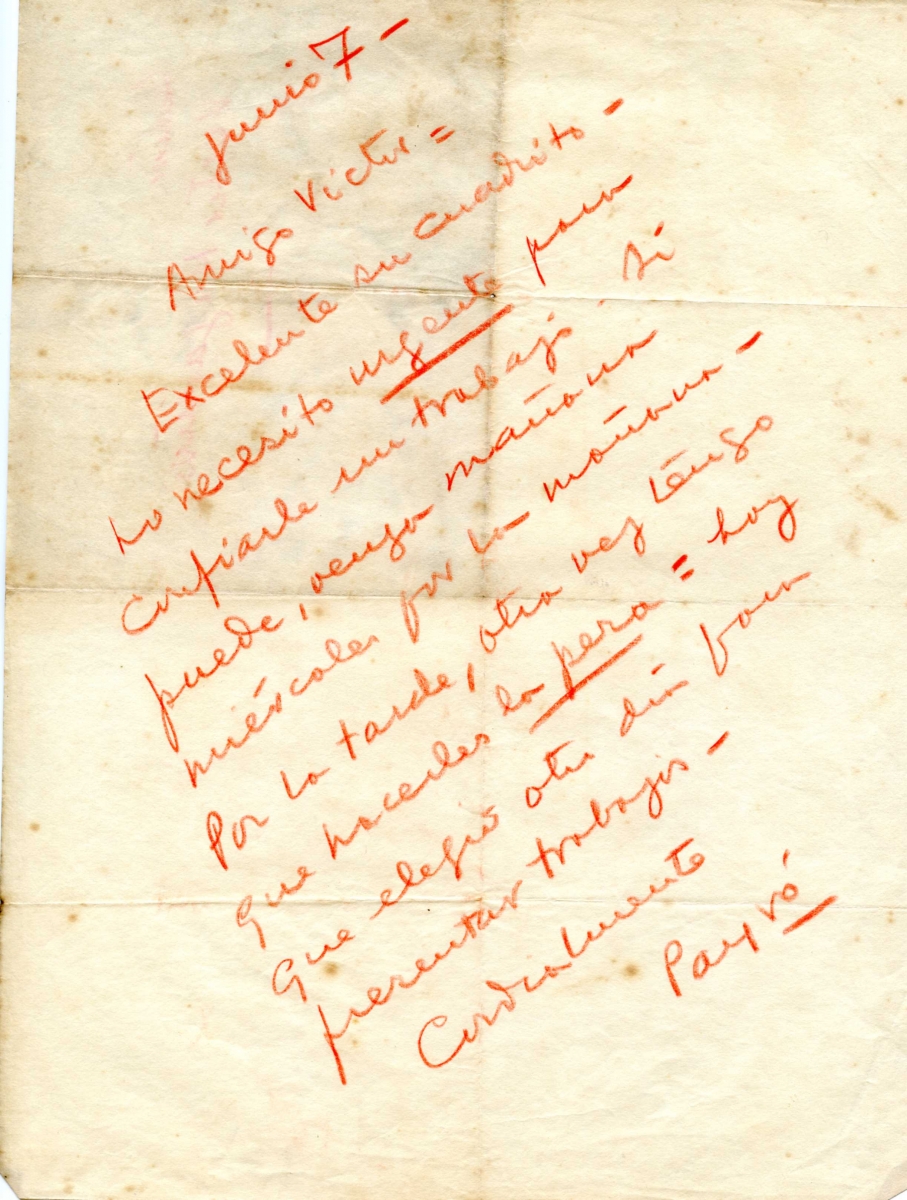 junio 7 -
Amigo Victor =
Excelente su cuadrito -
Lo necesito urgente para
confiarle un trabajo. Si
puede, venga mañana
miércoles por la mañana -
Por la tarde, otra vez tengo
que hacerles la pera = hay
que elegir otro día para
presentar trabajos -
Cordialmente
Payró